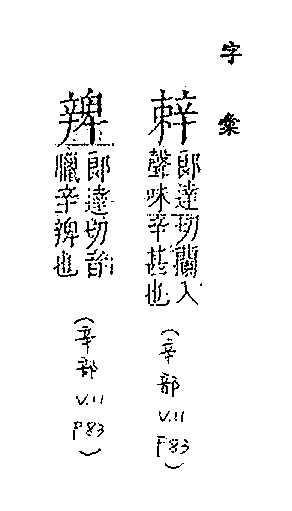 字彙
𨐌
郎達切闌入
聲味辛甚也
(辛部
V.11
P83)
郎達切音
臘辛辣也
(辛部
V.11
P83)